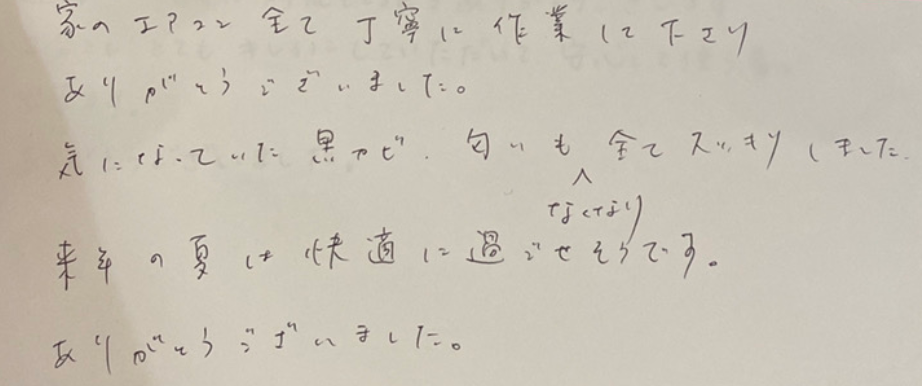 家のエアコン全て丁寧に作業して下さり
ありがとうございました。
気になっていた黒カビ、匂いも全てスッキリしました。
なくなり
来年の夏は快適に過ごせそうです。
ありがとうございました。